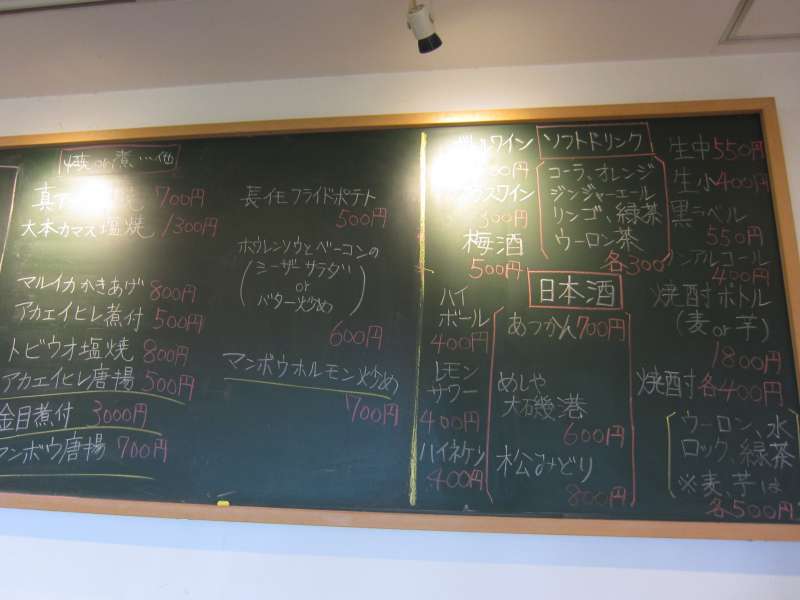 焼or煮…他
真ア 焼 700円
大本カマス塩焼 1300円
マルイカかきあげ 800円
アカエイヒレ煮付 500円
トビウオ塩焼 800円
アカエイヒレ唐揚 500円
金目煮付 3000円
マンボウ唐揚 700円
長イモフライドポテト
500円
ホウレンソウとベーコンの
(シーザーサラダ
or
バター炒め)
600円
マンボウホルモン炒め
700円
ワイン
00円
グラスワイン
300円
梅酒
500円
ハイ
ボール
400円
レモン
サワー
400円
ハイネケン
400円
ソフトドリンク
コーラ、オレンジ
ジンジャーエール
リンゴ、緑茶
ウーロン茶
各300
日本酒
あつかん700円
めしや
大磯港
600円
松みどり
800円
生中550円
生小400円
黒ラベル
550円
ノンアルコール
400円
焼酎ボトル
(麦or芋)
1800円
焼酎各400円
ウーロン、水
ロック、緑茶
※麦芋は
各500円